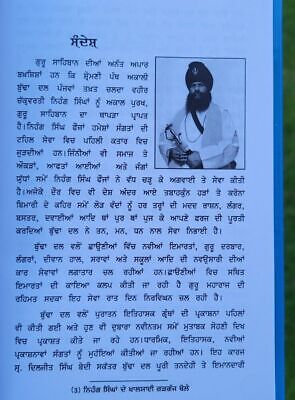 ਸੰਦੇਸ਼
ਗੁਰੂ ਸਾਹਿਬਾਨ ਦੀਆਂ ਅਨੰਤ ਅਪਾਰ
ਬਖਸ਼ਿਸ਼ਾਂ ਹਨ ਕਿ ਸ਼੍ਰੋਮਣੀ ਪੰਥ ਅਕਾਲੀ
ਬੁੱਢਾ ਦਲ ਪੰਜਵਾਂ ਤਖ਼ਤ ਚਲਦਾ ਵਹੀਰ
ਚੱਕਰਵਰਤੀ ਨਿਹੰਗ ਸਿੰਘਾਂ ਨੂੰ ਅਕਾਲ ਪੁਰਖ,
ਗੁਰੂ ਸਾਹਿਬਾਨ ਦਾ ਥਾਪੜਾ ਪ੍ਰਾਪਤ
ਹੈ।ਨਿਹੰਗ ਸਿੰਘ ਫੌਜਾਂ ਹਮੇਸ਼ਾਂ ਸੰਗਤਾਂ ਦੀ
ਟਹਿਲ ਸੇਵਾ ਵਿਚ ਪਹਿਲੀ ਕਤਾਰ ਵਿਚ
ਜੁੜਦੀਆਂ ਹਨ।ਜਿੰਨੀਆਂ ਵੀ ਸਮਾਜ ਤੇ
ਔਕੜਾਂ, ਆਫਤਾਂ ਆਈਆਂ ਅਤੇ ਜੰਗਾਂ
ਯੁੱਧਾਂ ਸਮੇਂ ਨਿਹੰਗ ਸਿੰਘ ਫੌਜਾਂ ਨੇ ਵੱਧ ਚੜ੍ਹ ਕੇ ਅਗਵਾਈ ਤੇ ਸੇਵਾ ਕੀਤੀ
ਹੈ।ਅਜੋਕੇ ਦੌਰ ਵਿਚ ਵੀ ਦੇਸ਼ ਅੰਦਰ ਆਏ ਤਬਾਹਕੁੰਨ ਹੜਾਂ ਤੇ ਕਰੋਨਾ
ਬਿਮਾਰੀ ਦੇ ਕਹਿਰ ਸਮੇਂ ਲੋੜ ਵੰਦਾਂ ਨੂੰ ਹਰ ਤਰ੍ਹਾਂ ਦੀ ਮਦਦ ਰਾਸ਼ਨ, ਲੰਗਰ,
ਬਸਤਰ, ਦਵਾਈਆਂ ਆਦਿ ਥਾਂ ਪੁਰ ਥਾਂ ਪੁਜ ਕੇ ਆਪਣੇ ਫਰਜ਼ ਦੀ ਪੂਰਤੀ
ਕਰਦਿਆਂ ਬੁੱਢਾ ਦਲ ਨੇ ਤਨ, ਮਨ, ਧਨ ਨਾਲ ਸੇਵਾ ਨਿਭਾਈ ਹੈ।
ਬੁੱਢਾ ਦਲ ਵਲੋਂ ਛਾਉਣੀਆਂ ਵਿੱਚ ਨਵੀਆਂ ਇਮਾਰਤਾਂ, ਗੁਰੂ ਦਰਬਾਰ,
ਲੰਗਰਾਂ, ਦੀਵਾਨ ਹਾਲ, ਸਰਾਵਾਂ ਅਤੇ ਸਕੂਲਾਂ ਆਦਿ ਦੀ ਨਵਉਸਾਰੀ ਦੀਆਂ
ਕਾਰ ਸੇਵਾਵਾਂ ਲਗਾਤਾਰ ਚਲ ਰਹੀਆਂ ਹਨ।ਛਾਉਣੀਆਂ ਵਿਚ ਸਥਿਤ
ਇਮਾਰਤਾਂ ਦੀ ਕਾਇਆ ਕਲਪ ਕੀਤੀ ਜਾ ਰਹੀ ਹੈ ਗੁਰੂ ਮਹਾਰਾਜ ਦੀ
ਰਹਿਮਤ ਸਦਕਾ ਇਹ ਸੇਵਾ ਰਾਤ ਦਿਨ ਨਿਰਵਿਘਨ ਚਲ ਰਹੀ ਹੈ।
ਬੁੱਢਾ ਦਲ ਵਲੋਂ ਪੁਰਾਤਨ ਇਤਿਹਾਸਕ ਗ੍ਰੰਥਾਂ ਦੀ ਪ੍ਰਕਾਸ਼ਨਾ ਪਹਿਲਾਂ
ਵੀ ਕੀਤੀ ਗਈ ਅਤੇ ਹੁਣ ਵੀ ਦੁਬਾਰਾ ਨਵੀਨਤਮ ਸਮੇਂ ਮੁਤਾਬਕ ਸੋਹਣੀ ਦਿਖ
ਵਿਚ ਪ੍ਰਕਾਸ਼ਤ ਕੀਤੇ ਜਾ ਰਹੇ ਹਨ।ਧਾਰਮਿਕ, ਇਤਿਹਾਸਕ, ਨਵੀਆਂ
ਪ੍ਰਕਾਸ਼ਨਾਵਾਂ ਸੰਗਤਾਂ ਨੂੰ ਮੁਹੱਈਆ ਕੀਤੀਆਂ ਜਾ ਰਹੀਆਂ ਹਨ। ਇਹ ਕਾਰਜ
ਸ੍ਰ. ਦਿਲਜੀਤ ਸਿੰਘ ਬੇਦੀ ਸਕੱਤਰ ਬੁੱਢਾ ਦਲ ਪੂਰੀ ਤਨਦੇਹੀ ਤੇ ਇਮਾਨਦਾਰੀ
(3) ਨਿਹੰਗ ਸਿੰਘਾਂ ਦੇ ਖਾਲਸਾਈ ਗੜਗੱਜ ਬੋਲੇ